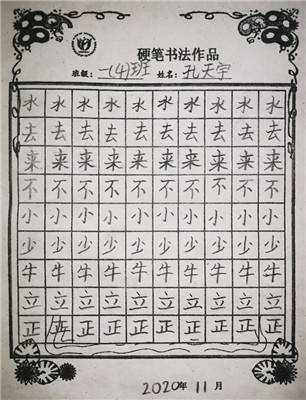 硬笔书法作品
班级：一(4)班 姓名：孔天宇
水水水水水水水水水
去去去去去去去去去
来来来来来来来来来
不不不不不不不不不
小小小小小小小小小
少少少少少少少少少
牛牛牛牛牛牛牛牛牛
立立立立立立立立立
正正正正正正正正正
2020年11月